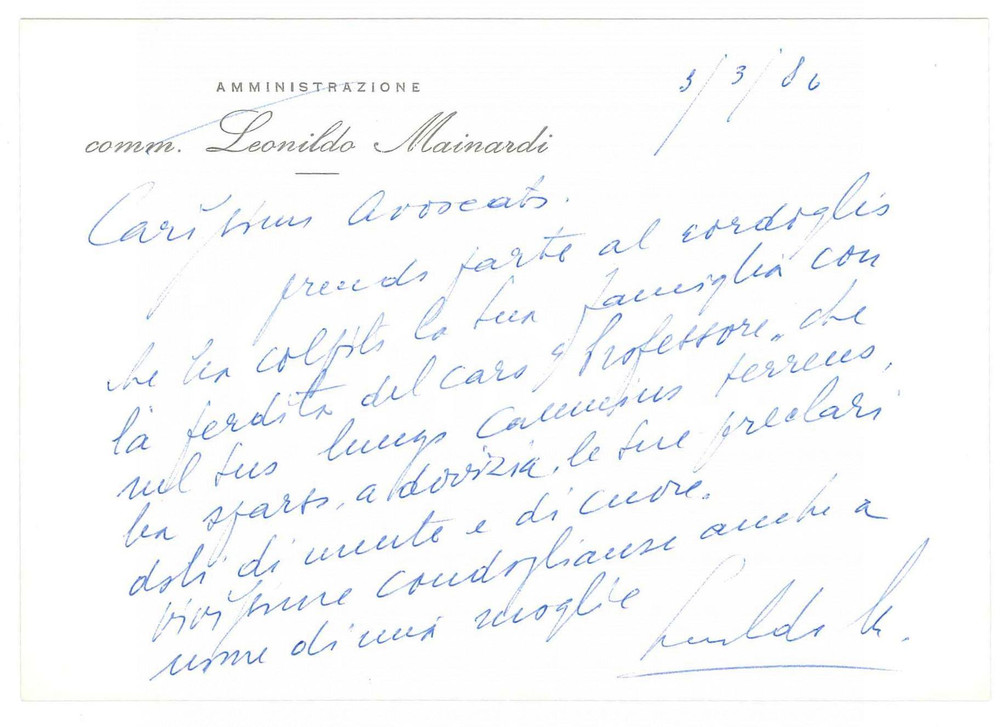 AMMINISTRAZIONE
comm. Leonildo Mainardi
3/3/86
Carissimo Avvocato.
prendo parte al cordoglio
che ha colpito la Sua famiglia con
la perdita del caro "Professore" che
nel suo lungo cammino terreno,
ha sparso, a dovizia, le sue preclari
doti di mente e di cuore.
Vivissime condoglianze anche a
nome di mia moglie
Leonildo M.